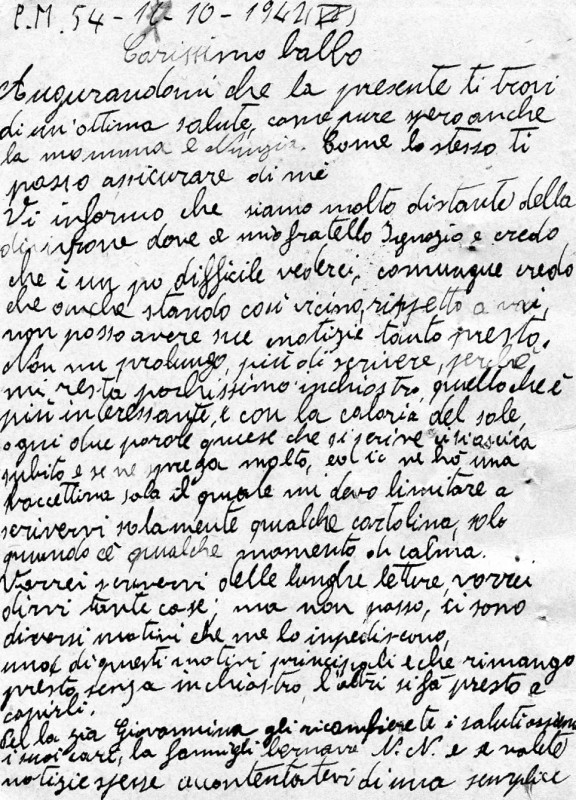 P.M. 54 - 10 - 1942
Carissimo babbo
Augurandomi che la presente ti trovi
di un'ottima salute, come pure spero anche
la mamma e Nunzia. Come lo stesso ti
posso assicurare di me
Vi informo che siamo molto distante della
divisione dove è mio fratello Ignazio e credo
che è un po difficile vederci, comunque credo
che anche stando così vicino, rispetto a voi,
non posso avere sue notizie tanto presto.
Non mi prolungo, più di scrivere, perchè
mi resta pochissimo inchiostro, quello che è
più interessante, è con la caloria del sole,
ogni due parole quese che si scrive si asciuca
subito e se ne sprega molto, ed io ne ho una
boccettina sola il quale mi devo limitare a
scrivervi solamente qualche cartolina, solo
quando cè qualche momento di calma.
Vorrei scrivervi delle lunghe lettere, vorrei
dirvi tante cose; ma non posso, ci sono
diversi motivi che me lo impediscono,
uno di questi motivi principali e che rimango
presto senza inchiostro, l'altri si fà presto a
capirli.
la zia Giovannina gli ricambierete i saluti
i suoi cari, la famigli N.N. e se volete
notizie spesse accontentatevi di una semplice